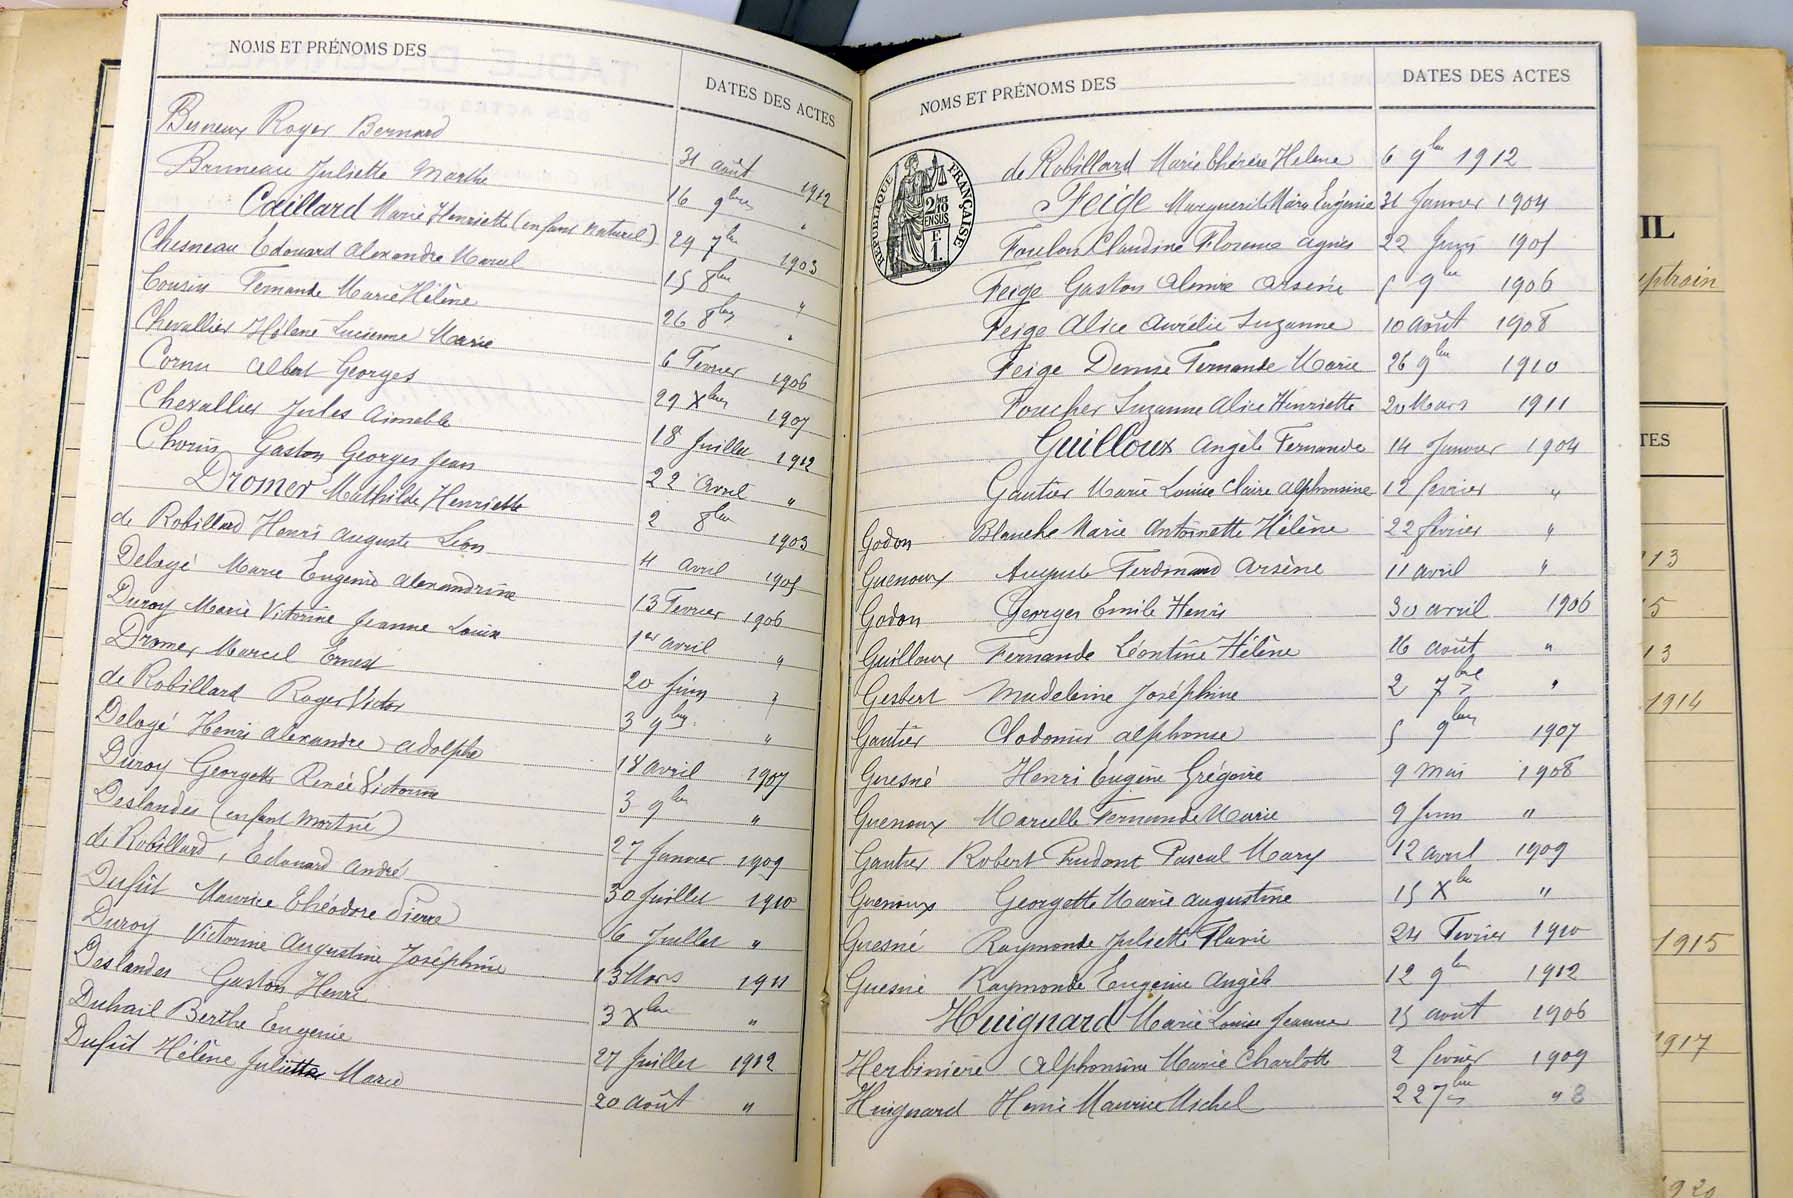 NOMS ET PRÉNOMS DES
DATES DES ACTES
Roger Bernard 31 août 1912
Bruneau Juliette Marthe 16 9bre "
Caillard Marie Henriette (enfant naturel) 29 7bre 1903
Chesneau Edouard Alexandre Marcel 15 8bre "
Cousin Fernande Marie Hélène 26 8bre "
Chevallier Hélène Lucienne Marie 6 Fevrier 1906
Cornu Albert Georges 29 Xbre 1907
Chevallier Jules Aimable 18 Juillet 1912
Chorin Gaston Georges Jean 22 Avril "
Dromer Mathilde Henriette 2 8bre 1903
de Robillard Henri Auguste Léon 4 avril 1905
Delogé Marie Eugénie Alexandrine 13 Fevrier 1906
Duroy Marie Victorine Jeanne Louise 1er avril "
Dromer Marcel Ernest 20 Juin "
de Robillard Roger Victor 3 9bre "
Delogé Henri Alexandre Adolphe 18 avril 1907
Duroy Georgette Renée Victorine 3 9bre "
Deslandes (enfant Mort né) 27 Janvier 1909
de Robillard, Edouard André 30 Juillet 1910
Dufût Maurice Théodore Pierre 6 Juillet "
Duroy Victorine Augustine Joséphine 13 Mars 1911
Deslandes Gaston Henri 3 Xbre "
Duhail Berthe Eugenie 27 Juillet 1912
Dufût Hélène Juliette Marie 20 Août "
NOMS ET PRÉNOMS DES
DATES DES ACTES
RÉPUBLIQUE FRANÇAISE
2/10 EN SUS
E 1.
de Robillard Marie Thérèse Helene 6 9bre 1912
Feige Marguerite Marie Eugénie 31 Janvier 1904
Foulon Claudine Florence Agnès 22 Juin 1905
Feige Gaston Arsène 5 9bre 1906
Feige Alice Aurélie Suzanne 10 Août 1908
Feige Denise Fernande Marie 26 9bre 1910
Foucher Suzanne Alice Henriette 20 Mars 1911
Guilloux Angèle Fernande 14 Janvier 1904
Gautier Marie Louise Claire Alphonsine 12 fevrier "
Godon Blanche Marie Antoinette Hélène 22 février "
Guenoux Auguste Ferdinand Arsène 11 avril "
Godon Georges Emile Henri 30 avril 1906
Guilloux Fernande Léontine Hélène 16 août "
Gesbert Madeleine Joséphine 2 7bre "
Gautier Clodomir Alphonse 5 9bre 1907
Guesné Henri Eugène Grégoire 9 Mai 1908
Guenoux Marcelle Fernande Marie 9 Juin "
Gautier Robert Prudent Pascal Mary 12 avril 1909
Guenoux Georgette Marie Augustine 15 Xbre "
Guesné Raymonde Juliette Flavie 24 Fevrier 1910
Guesné Raymonde Eugénie Angèle 12 9bre 1912
Huignard Marie Louise Jeanne 15 août 1906
Herbinière Alphonsine Marie Charlotte 2 fevrier 1909
Huignard Henri Maurice Michel 22 7bre " 3
IL
TES
13
5
13
1914
1915
1917
1920